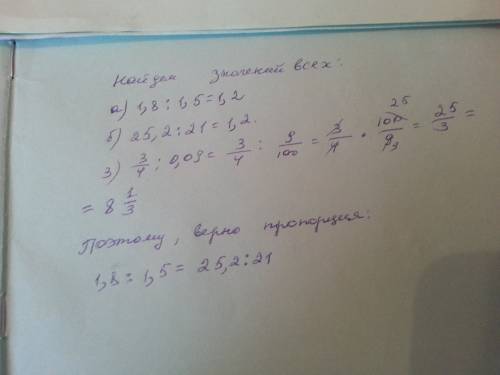 Найдем значений всех:
а) 1,8 : 1,5 = 1,2
б) 25,2 : 21 = 1,2.
3) 3/4 : 0,09 = 3/4 : 9/100 = 3/4 · 100/9 25 3 = 25/3 =
= 8 1/3
Поэтому, верно пропорция:
1,8 : 1,5 = 25,2 : 21